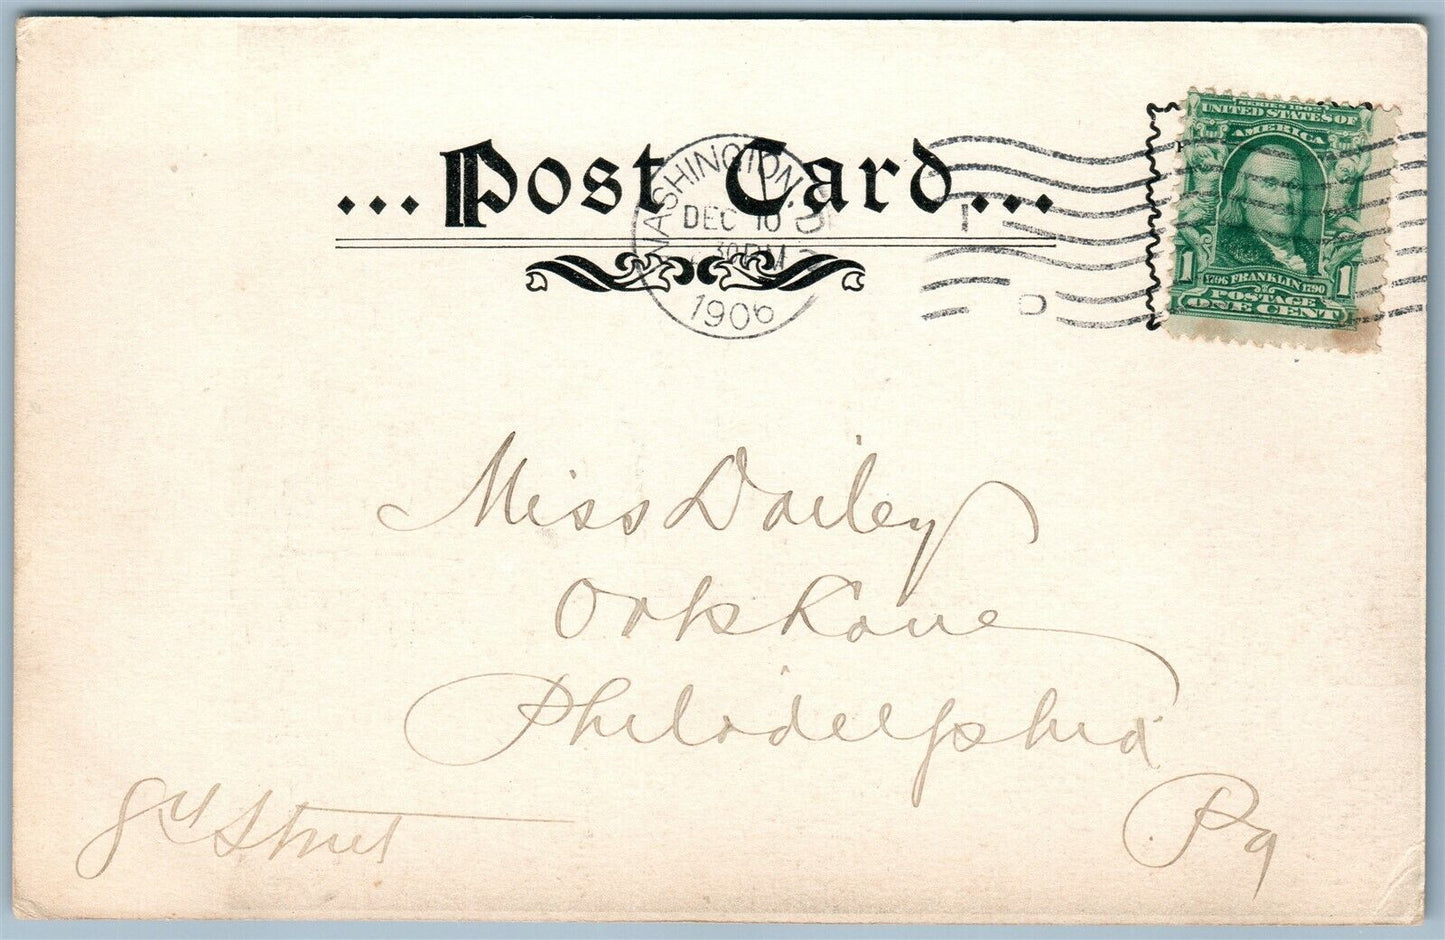 ...Post Card...
WASHINGTON, D.
DEC 10
30 PM
1906
SERIES 1902
UNITED STATES OF
AMERICA
1 1
1706 FRANKLIN 1790
POSTAGE
ONE CENT
Miss Dailey
Oak Lane
Philadelphia
Pa
8th Street